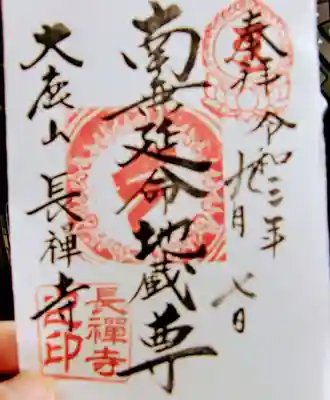 奉拝 令和三年
九月七日
南無延命地蔵尊
大鹿山 長禪寺
長禪寺
印